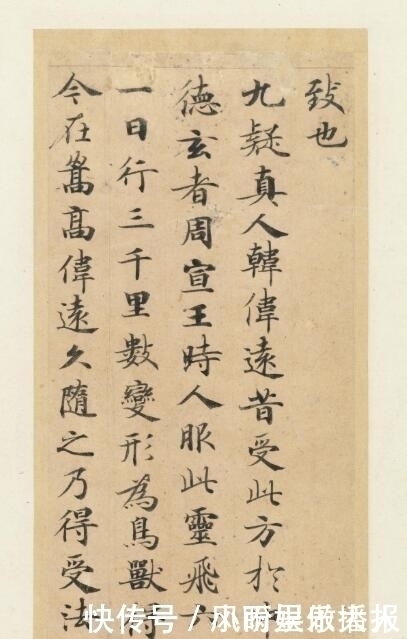 致也
九疑真人韓偉遠昔受此方於
德玄者周宣王時人服此靈飛六
一日行三千里數變形為鳥獸
今在嵩高偉遠久隨之乃得受法
快传号／